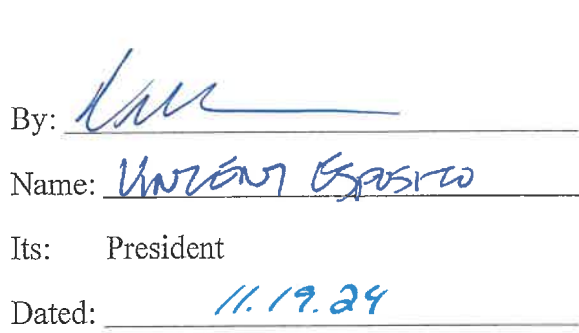 By:
Name: VINCENT ESPOSITO
Its: President
Dated: 11.19.24